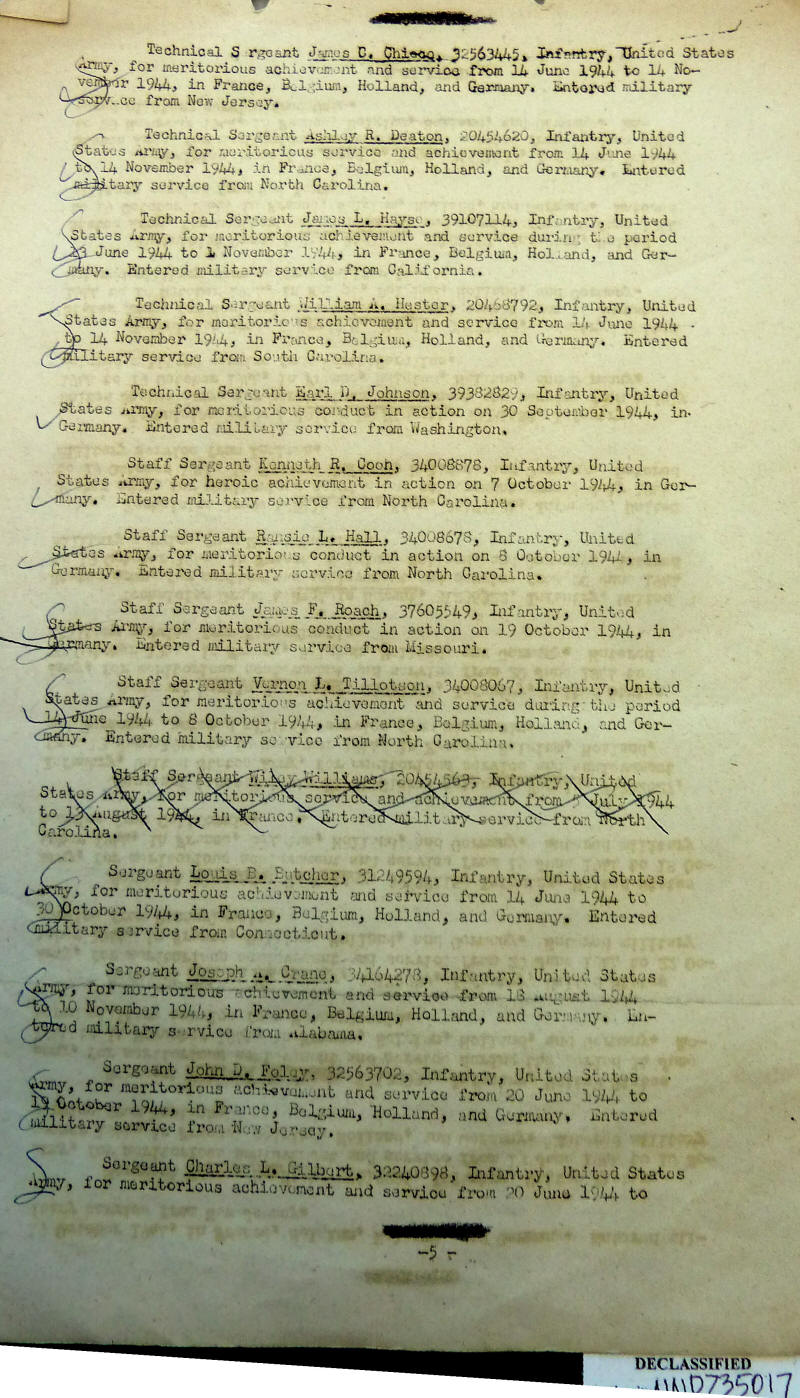 Technical S rgeant James C. Chiecq, 32563445, Infantry, United States
Army, for meritorious achievement and service from 14 June 1944 to 14 No-
vember 1944, in France, Belgium, Holland, and Germany. Entered military
service from New Jersey.
Technical Sergeant Ashley R. Deaton, 20454620, Infantry, United
States Army, for meritorious service and achievement from 14 June 1944
to 14 November 1944, in France, Belgium, Holland, and Germany. Entered
military service from North Carolina.
Technical Sergeant James L. Hayse, 39107114, Infantry, United
States Army, for meritorious achievement and service during the period
June 1944 to 1 November 1944, in France, Belgium, Holland, and Ger-
many. Entered military service from California.
Technical Sergeant William A. Hester, 20468792, Infantry, United
States Army, for meritorious achievement and service from 14 June 1944
to 14 November 1944, in France, Belgium, Holland, and Germany. Entered
military service from South Carolina.
Technical Sergeant Earl D. Johnson, 39382829, Infantry, United
States Army, for meritorious conduct in action on 30 September 1944, in
Germany. Entered military service from Washington.
Staff Sergeant Kenneth R. Cooh, 34008878, Infantry, United
States Army, for heroic achievement in action on 7 October 1944, in Ger-
many. Entered military service from North Carolina.
Staff Sergeant Ransie L. Hall, 34008678, Infantry, United
States Army, for meritorious conduct in action on 8 October 1944, in
Germany. Entered military service from North Carolina.
Staff Sergeant James F. Roach, 37605549, Infantry, United
States Army, for meritorious conduct in action on 19 October 1944, in
Germany. Entered military service from Missouri.
Staff Sergeant Vernon L. Tillotson, 34008067, Infantry, United
States Army, for meritorious achievement and service during the period
14 June 1944 to 8 October 1944, in France, Belgium, Holland, and Ger-
many. Entered military service from North Carolina.
Staff Sergeant Wiley Williams, 20454363, Infantry, United
States Army, for meritorious service and achievement from July 1944
to 13 August 1944, in France. Entered military service from North
Carolina.
Sergeant Louis B. Butcher, 31249594, Infantry, United States
Army, for meritorious achievement and service from 14 June 1944 to
30 October 1944, in France, Belgium, Holland, and Germany. Entered
military service from Connecticut.
Sergeant Joseph A. Crane, 34164278, Infantry, United States
Army, for meritorious achievement and service from 13 August 1944
to 10 November 1944, in France, Belgium, Holland, and Germany. En-
tered military service from Alabama.
Sergeant John D. Foley, 32563702, Infantry, United States
Army, for meritorious achievement and service from 20 June 1944 to
October 1944, in France, Belgium, Holland, and Germany. Entered
military service from New Jersey.
Sergeant Charles L. Gilbert, 32240898, Infantry, United States
Army, for meritorious achievement and service from 20 June 1944 to
-5-
DECLASSIFIED
NND735017